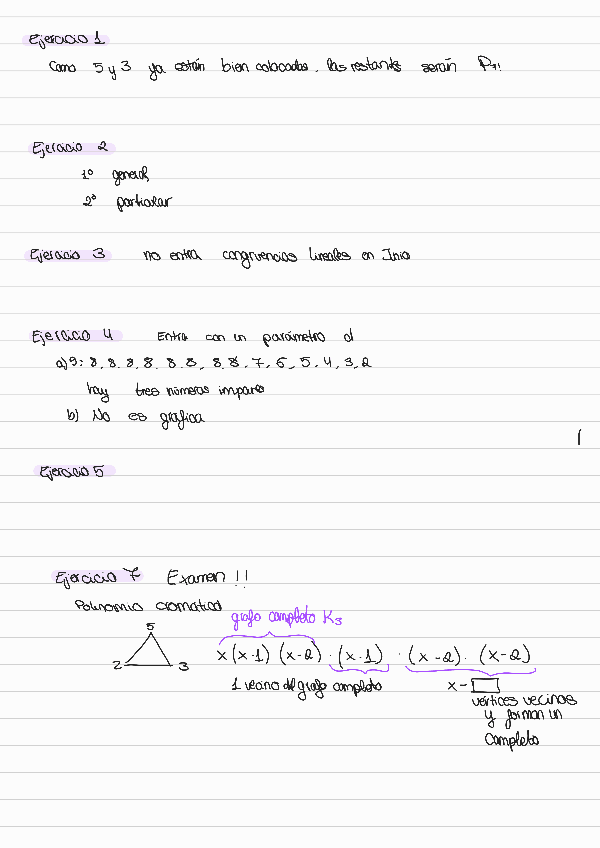 Ejercicio 1
Como 5 y 3 ya están bien colocados. las restantes serán P₇!
Ejercicio 2
1º general
2º particular
Ejercicio 3 no entra congruencias lineales en Junio
Ejercicio 4 Entra con un parámetro d
a) 9: 8, 8, 8, 8, 8, 8, 8, 8, 7, 6, 5, 4, 3, 2
hay tres números impares
b) No es gráfica
Ejercicio 5
Ejercicio 7 Examen !!
Polinomio cromático
grafo completo K₃
5
2 3 x (x-1) (x-2) · (x-1) · (x-2) · (x-2)
1 vecino del grafo completo x -
vértices vecinos
y forman un
completo